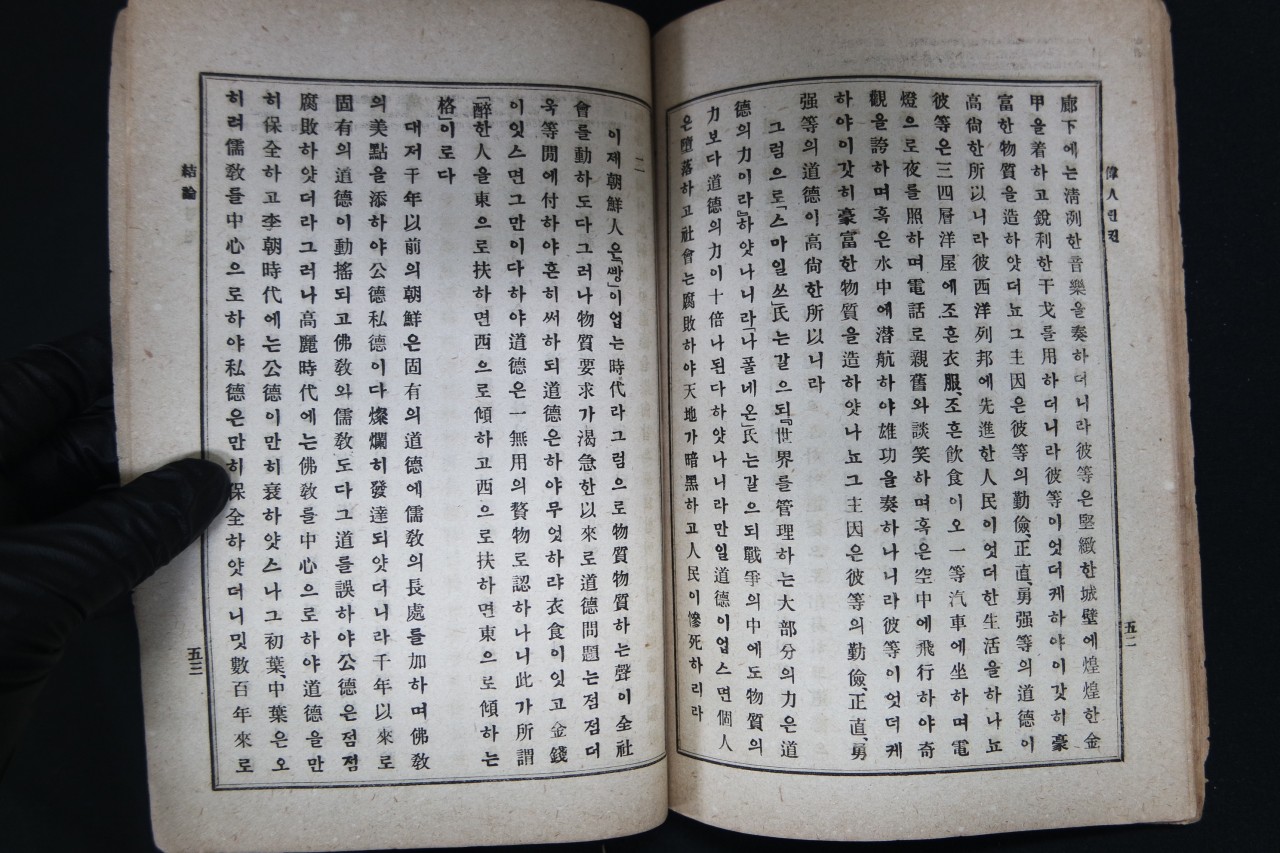 偉人린컨
五二
廊下에는淸冽한音樂을奏하더니라彼等은堅緻한城壁에煌煌한金
甲을着하고銳利한干戈를用하더니라彼等이엇더케하야이갓히豪
富한物質을造하얏더뇨그主因은彼等의勤儉、正直、勇强等의道德이
高尙한所以니라彼西洋列邦에先進한人民이엇더한生活을하나뇨
彼等은三四層洋屋에조흔衣服、조흔飮食이오一等汽車에坐하며電
燈으로夜를照하며電話로親舊와談笑하며혹은空中에飛行하야奇
觀을誇하며혹은水中에潛航하야雄功을奏하나니라彼等이엇더케
하야이갓히豪富한物質을造하얏나뇨그主因은彼等의勤儉、正直、勇
强等의道德이高尙한所以니라
그럼으로「스마일쓰」氏는갈으되『世界를管理하는大部分의力은道
德의力이라』하얏나니라「나폴네온」氏는갈으되戰爭의中에도物質의
力보다道德의力이十倍나된다하얏나니라만일道德이업스면個人
은墮落하고社會는腐敗하야天地가暗黑하고人民이慘死하리라
二
이제朝鮮人은「빵」이업는時代라그럼으로物質物質하는聲이全社
會를動하도다그러나物質要求가渴急한以來로道德問題는점점더
욱等閒에付하야흔히써하되道德은하야무엇하랴衣食이잇고金錢
이잇스면그만이다하야道德은一無用의贅物로認하나니此가所謂
「醉한人을東으로扶하면西으로傾하고西으로扶하면東으로傾하는
格」이로다
대저千年以前의朝鮮은固有의道德에儒敎의長處를加하며佛敎
의美點을添하야公德私德이다燦爛히發達되얏더니라千年以來로
固有의道德이動搖되고佛敎와儒敎도다그道를誤하야公德은점점
腐敗하얏더라그러나高麗時代에는佛敎를中心으로하야道德을만
히保全하고李朝時代에는公德이만히衰하얏스나그初葉、中葉은오
히려儒敎를中心으로하야私德은만히保全하얏더니밋數百年來로
結論
五三